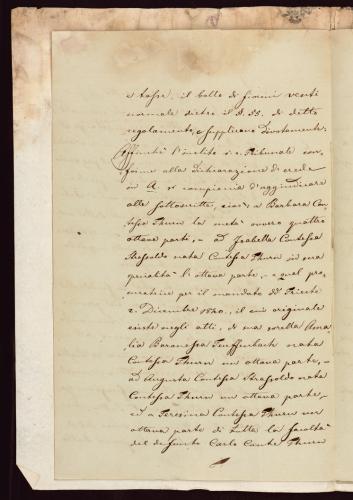 e tasse, il bollo di fiorini venti
normale dietro il § 55. di detto
regolamento, e supplicano divotamente:
Affinchè l'inclito i. r. Tribunale con,,
forme alla dichiarazione di erede
in A. si compiaccia d'aggiudicare
alle sottoscritte, cioè: a Barbara Con,,
tessa Thurn la metà ovvero quattro
ottave parti, – ad Isabella Contessa
Strassoldo nata Contessa Thurn in sua
specialità l'ottava parte, – e qual pro,,
curatrice per il mandato dd. Trieste
2. Dicembre 1840., il cui originale
esiste negli atti, di sua sorella Ama,,
lia Baronessa Teuffenbach nata
Contessa Thurn un'ottava parte, –
ad Augusta Contessa Strassoldo nata
Contessa Thurn un'ottava parte, –
ed a Teresina Contessa Thurn un'
ottava parte di tutta la facoltà
del defunto Carlo Conte Thurn